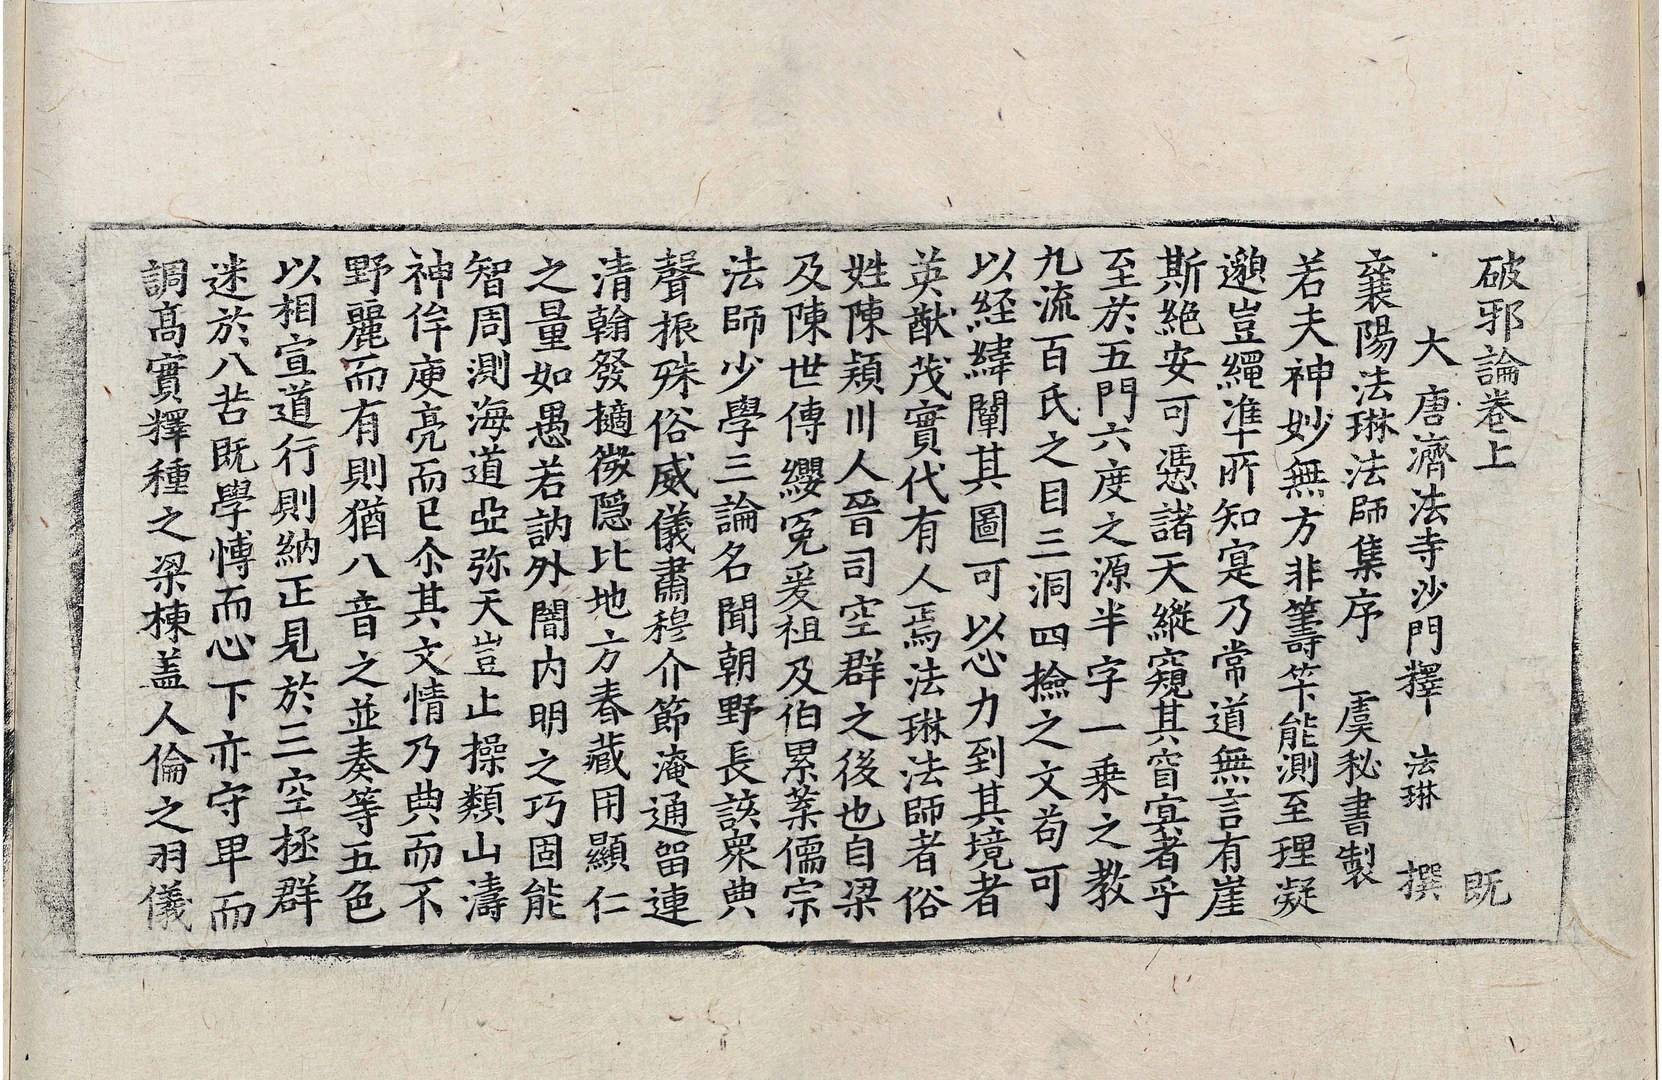 破邪論卷上 既
大唐濟法寺沙門釋 法琳 撰
襄陽法琳法師集序 虞秘書製
若夫神妙無方非籌筭能測至理凝
邈豈繩准所知寔乃常道無言有崖
斯絶安可憑諸天縱窺其窅冥者乎
至於五門六度之源半字一乘之教
九流百氏之目三洞四撿之文苟可
以經緯闡其圖可以心力到其境者
英猷茂實代有人焉法琳法師者俗
姓陳潁川人晉司空群之後也自梁
及陳世傳纓冕爰祖及伯累業儒宗
法師少學三論名聞朝野長該衆典
聲振殊俗威儀肅穆介節淹通留連
清翰發擿微隱比地方春藏用顯仁
之量如愚若訥外闇内明之巧固能
智周測海道亞弥天豈止操類山濤
神侔庾亮而已尒其文情乃典而不
野麗而有則猶八音之並奏等五色
以相宣道行則納正見於三空拯群
迷於八苦既學博而心下亦守卑而
調髙實釋種之梁棟盖人倫之羽儀